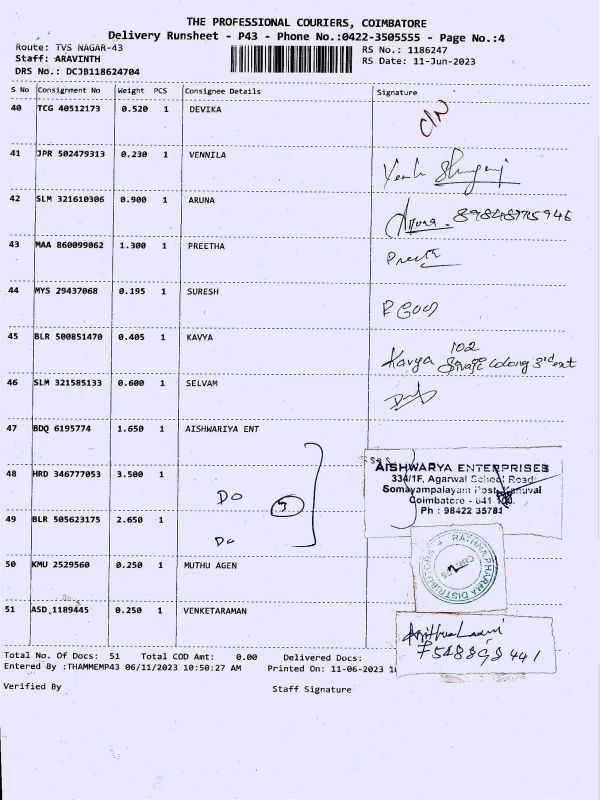 THE PROFESSIONAL COURIERS, COIMBATORE
Delivery Runsheet - P43 - Phone No.:0422-3505555 - Page No.:4
Route: TVS NAGAR-43 RS No.: 1186247
Staff: ARAVINTH RS Date: 11-Jun-2023
DRS No.: DCJB118624704
S No Consignment No Weight PCS Consignee Details Signature
40 TCG 40512173 0.520 1 DEVIKA
41 JPR 502479313 0.230 1 VENNILA
42 SLM 321610306 0.900 1 ARUNA Aruna
43 MAA 860099062 1.300 1 PREETHA
44 MYS 29437068 0.195 1 SURESH
45 BLR 500851470 0.405 1 KAVYA 102
Kavya
46 SLM 321585133 0.600 1 SELVAM
47 BDQ 6195774 1.650 1 AISHWARIYA ENT
AISHWARYA ENTERPRISES
334/1F, Agarwal School Road
Somayampalayam Post,
Coimbatore - 641
Ph : 98422 35781
48 HRD 346777053 3.500 1
DO
49 BLR 505623175 2.650 1
DO
50 KMU 2529560 0.250 1 MUTHU AGEN
RATHNA PHARMA DISTRIBUTORS
51 ASD 1189445 0.250 1 VENKETARAMAN
Total No. Of Docs: 51 Total COD Amt: 0.00 Delivered Docs:
Entered By :THAMMEMP43 06/11/2023 10:50:27 AM Printed On: 11-06-2023
Verified By Staff Signature